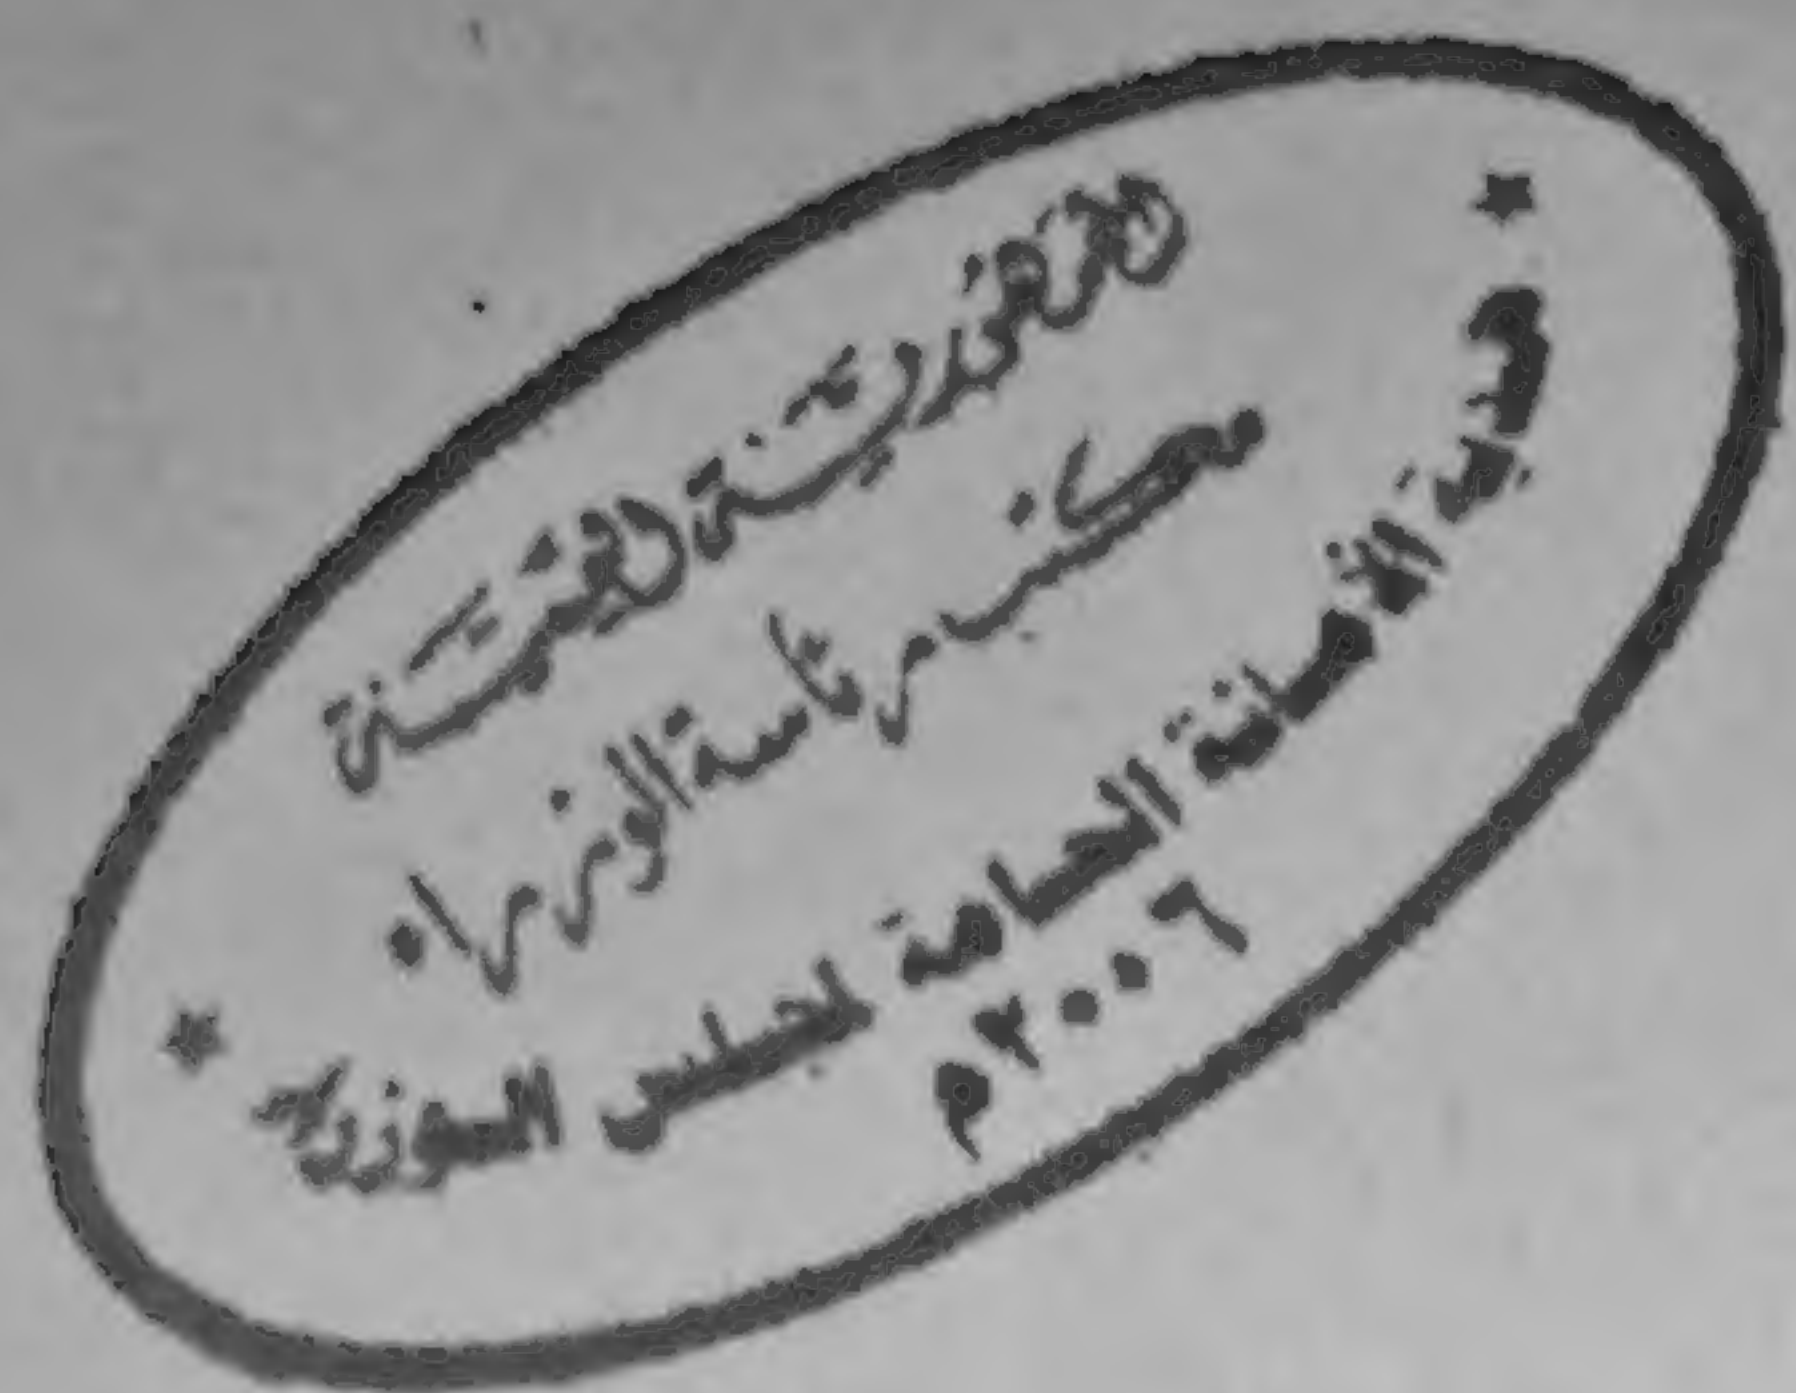 الجمهورية اليمنية
مكتب رئاسة الوزراء
هدية الأمانة العامة لمجلس الوزراء
٢٠٠٦م